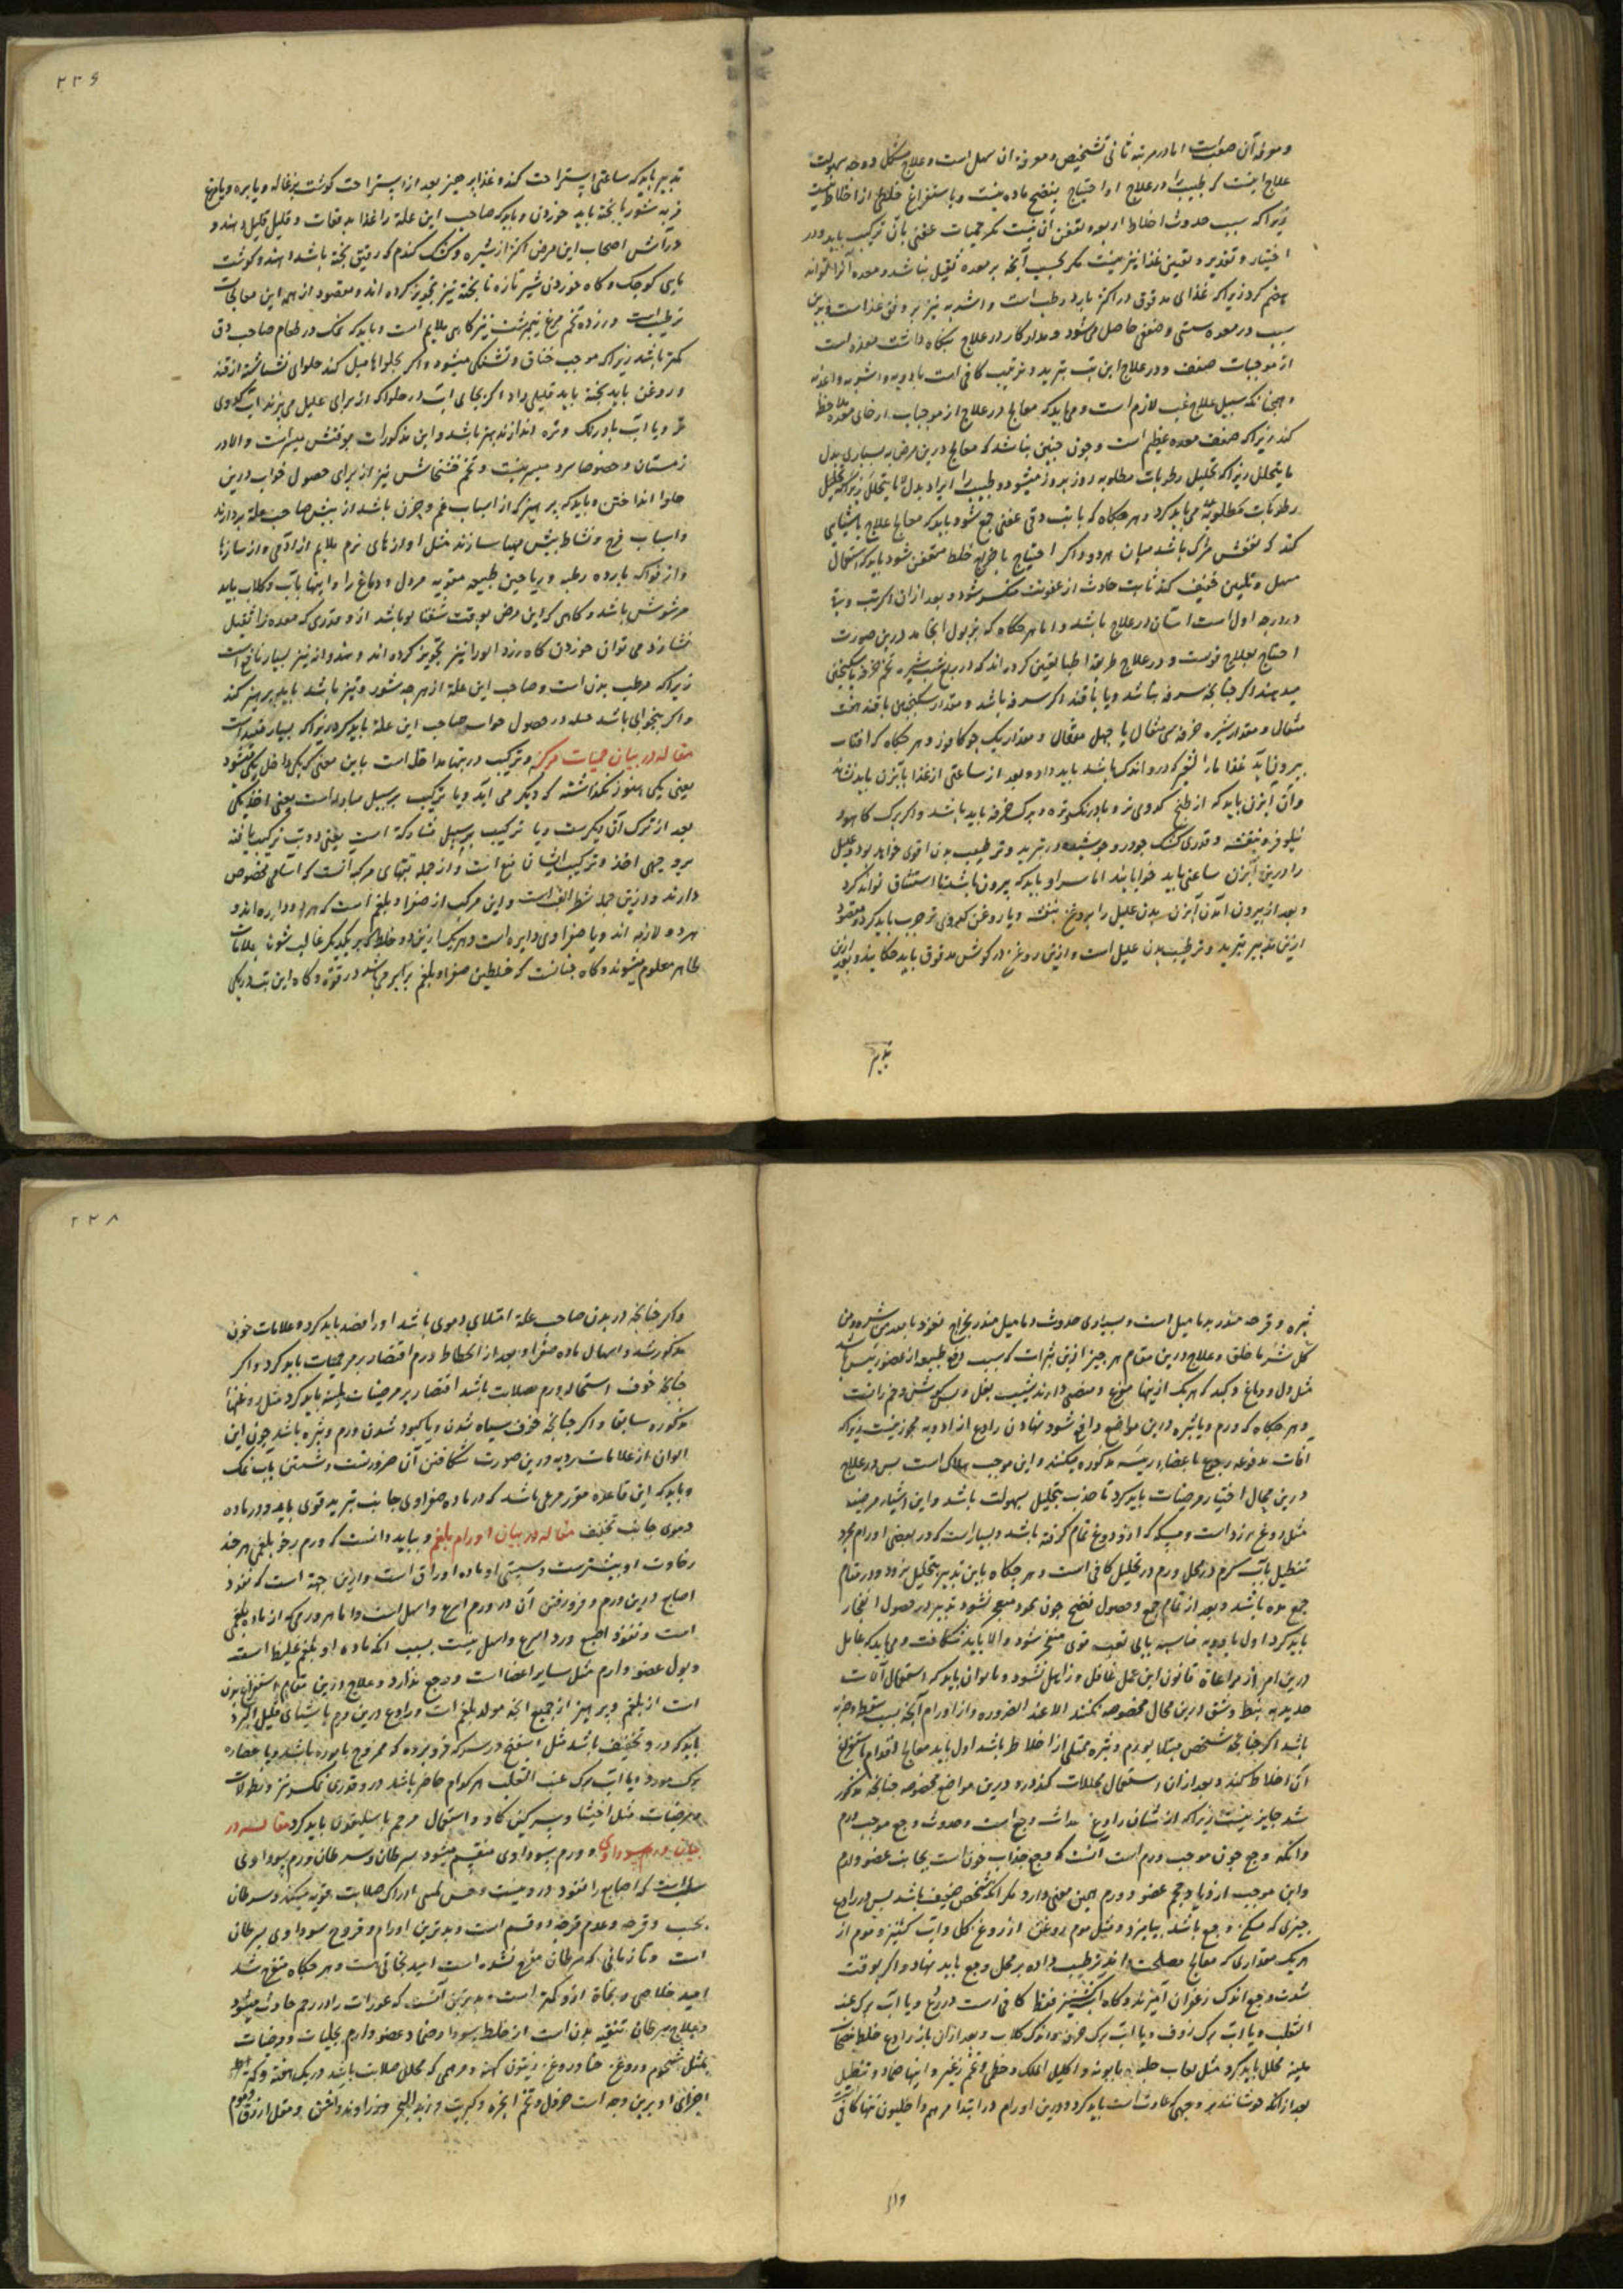 و معرفة آن صعب است اما در مرتبه ثانی تشخیص و معرفة ان سهل است و علاج مشکل و وجه سهولت
علاج اینست که طبیب را در علاج او احتیاج بنضج ماده نیست و با ستفراغ خلطی از اخلاط نیست
زیرا که سبب حدوث اخلاط اربعه و تعفن آن نیست مکر حمیات عفنی بآن ترکیب یابد و در
اختیار و تقدیر و تعیین غذا نیز نیست مکر بحسب آنچه بر معده ثقیل نباشد و معده آنرا تواند
هضم کرد زیرا که غذای مدقوق در اکثر بارد رطب است و اشربه نیز بر وفق غذا است و بدین
سبب در معده سستی و ضعفی حاصل می شود و مدار کار در علاج نکاه داشت معده است
از موجبات ضعف و در علاج این تب تبرید و ترطیب کافی است بادویه و اشربه و اغذیه
و همچنانکه سبیل علاج غب لازم است و می باید که معالج در علاج از موجبات ارخای معده ملاحظه
کند زیرا که ضعف معده عظیم است و چون چنین نباشد که معالج درین مرض به بسیاری بدل
ما یتحلل زیرا که تحلیل رطوبات مطلوبه روز بروز میشود و طبیب را ایراد بدل ما یتحلل زیرا که تحلیل
رطوبات مطلوبه می باید کرد و هر جکاه که با تب دقی عفنی جمع شود باید که معالج علاج باشیایی
کند که نفعش مشترک باشد میان هر دو و اکر احتیاج باخراج خلط متعفن شود باید که استعمال
مسهل و تلیین خفیف کند تا تب حادث از عفونت منکسر شود و بعد از ان اکر تب دق
در درجه اول است آسان در علاج باشد و اما هر جکاه که بذبول انجامد درین صورت
احتیاج بعلاج قویست و در علاج طریقة اطبا تعیین کرده اند که در ربع شب شیره تخم خرفه با سکنجبین
میدهند اکر چنانچه سرفه نباشد و یا با قند اکر سرفه باشد و مقدار سکنجبین یا قند هفت
مثقال و مقدار شیره خرفه سی مثقال یا چهل مثقال و مقدار یک جو کافور و هر جکاه که افتاب
بیرون آید غذا ماء الشعیر که در و اندک باشد باید داد و بعد از ساعتی از غذا بآبزن باید نشاند
و آن آبزن باید که از طبخ کدوی تر و بادرنک تره و برک خرفه باید باشد و اکر برک کاهو و
نیلوفر و بنفشه و قدری کشک جو در و جوشیده در تبرید و ترطیب بدن اقوی خواهد بود و علیل
را درین آبزن ساعتی باید خوابانید اما سر او باید که بیرون باشد تا استنشاق تواند کرد
و بعد از بیرون آمدن آبزن بدن علیل را بروغن بنفشه و یا روغن کدوی تر چرب باید کرد و مقصود
ازین تدبیر تبرید و ترطیب بدن علیل است و ازین روغن در کوش مدقوق باید چکانید و بعد ازین
تدبیر
۲۲۶
تدبیر باید که ساعتی استراحت کند و غذا بر جیز بعد از استراحت کوشت بزغاله و یا بره و یا مرغ
فربه شوربا پخته باید خوردن و باید که صاحب این علة را غذا بدفعات و قلیل قلیل دهند و
در آش اصحاب این مرض اکثر از شیره و کشک کندم که رقیق پخته باشد دهند و کوشت
باهی کوچک و کاه خوردن شیر تازه نا پخته نیز تجویز کرده اند و مقصود از همه این معالجات
ترطیب است و زرده تخم مرغ نیمبرشت نیز کاهی ملایم است و باید که نمک در طعام صاحب دق
کمتر باشد زیرا که موجب خناق و تشنکی میشود و اکر بحلواها میل کند حلوای نشاسته از قند
و روغن باید پخته باید قلیلی داد اکر بجای آب در حلوا که از برای علیل می پزند اب کدوی
تر و یا آب بادرنک و تره اندازند بهتر باشد و این مذکورات بوقتش میسر است و الا در
زمستان و خصوصا سرد میسر نیست و تخم خشخاش نیز از برای حصول خواب درین
حلوا انداختن و باید که پرهیز که از اسباب غم و حزن باشد از پیش صاحب علة بردارند
و اسباب فرح و نشاط پیش مهیا سازند مثل اوازهای نرم ملایم از آدمی و از سازها
و از فواکه بارده رطبه و ریاحین طبیعه مقویه مر دل و دماغ را و اینها باب و کلاب باید
مرشوش باشد و کاهی که این مرض بوقت شفتالو باشد از و قدری که معده را ثقیل
نسازد می توان خوردن کاه زرد الو را نیز تجویز کرده اند و هندوانه نیز بسیار نافع است
زیرا که مرطب بدن است و صاحب این علة از هر چه شور و تیز باشد باید پرهیز کند
و اکر بیخوابی باشد حیله در حصول خواب صاحب این علة باید کرد زیرا که بسیار مفید است
مقاله در بیان حمیات مرکبه و ترکیب در تبها مداخله است باین معنی که یکی داخل یکی میشود
یعنی یکی هنوز نکذاشته که دیکر می آید و یا ترکیب بر سبیل مبادله است یعنی اخذ یکی
بعد از ترک آن دیکرست و یا ترکیب بر سبیل مشارکة است یعنی دو تب ترکیب یافته
بر وجهی اخذ و ترکیب ایشان مع است و از جمله تبهای مرکبه آنست که اسامی مخصوص
دارند و ازین جمله شطر الغب است و این مرکب از صفرا و بلغم است که هر دو دایره اند و
هر دو لازمه اند و یا صفراوی دایره است و هر یک ازین دو خلط که بر یکدیکر غالب شود بعلامات
ظاهر معلوم میشوند و کاه چنانست که خلطین صفرا و بلغم برابر می باشد در قوة و کاه این تب در یکی
بثره و قرحه منذر بدمامیل است و بسیاری حدوث دمامیل منذر بخراج نعوذ بالله من شره و من
کل شر ما خلق و علاج درین مقام هر چیز ازین بثرات که بسبب دفع طبیعه از عضو رئیس باشد
مثل دل و دماغ و کبد که هر یک ازینها مفرغ و منفضی دارند شیب بغل و پس کوش و خم رانست
و هر جکاه که ورم و یا بثره درین مواضع واقع شود نهادن رادع از ادویه مجوز نیست زیرا که
افات مدفوعه رجوع باعضاء رئیسه مذکوره میکنند و این موجب هلاک است پس در علاج
درین محال اختیار مرخیات باید کرد تا جذب بتحلیل بسهولت باشد و این اشیاء مرخیه
مثل روغن زرد است و مسکه که از و دوغ تمام کرفته باشد و بسیار است که در بعضی اورام مجرد
تنطیل بآب کرم در محل ورم در تحلیل کافی است و هر جکاه باین تدبیر بتحلیل نرود و در مقام
جمع مده باشد و بعد از تمام جمع و حصول نضج چون بخود منفجر نشود تدبیر در حصول انفجار
باید کرد اول بادویه مناسبه بالی تعب قوی منفجر شود و الا باید شکافت و می باید که عامل
درین امر از مراعاة قانون این عمل غافل و زاهل نشود و تا توان باید که استعمال آلات
حدیدیه ببط و شق درین محال مخصوصه نکنند الا عند الضروره و از اورام آنچه بسبب سقطه و ضربه
باشد اکر چنانچه شخص مبتلا بورم و بثره ممتلی از اخلاط باشد اول باید معالج اقدام باستفراغ
آن اخلاط کند و بعد از ان استعمال محللات کند و درین مواضع مخصوصه چنانچه مذکور
شد جایز نیست زیرا که از شان رادع احداث وجع است و حدوث وجع موجب ورم
و آنکه وجع چون موجب ورم است آنست که وجع جذاب خون است بجانب عضو وارم
و این موجب ازدیاد حجم عضو و ورم همین معنی دارد مکر آنکه شخص ضعیف باشد پس در رادع
چیزی که مسکن وجع باشد بیامیزد و مثل موم روغن از روغن کل و آب کشنیز و موم از
هر یک مقداری که معالج مصلحت داند ترتیب داده بر محل وجع باید نهاد و اکر بوقت
شدت وجع اندک زعفران آمیزند و کاه آب کشنیز فقط کافی است در ردع و یا آب برک عنب
الثعلب و یا آب برک زوف و یا آب برک خرفه و اندک کلاب و بعد از ان با رادع خلط مرخیات
ملینه محلل باید کرد مثل لعاب حلبه و بابونه و اکلیل الملک و خطمی و تخم زغیر و اینها ضماد و تنطیل
بعد از آنکه جوشانند بر وجهی که عادت است باید کرد و درین اورام در ابتدا مرهم داخلیون تنها کافی است
و اکر
۲۲۸
و اکر چنانچه در بدن صاحب علة امتلای دموی باشد او را فصد باید کرد و علامات خون
مذکور شد و اسهال ماده صفرا و بعد از انحطاط ورم اقتصار بر مرخیات باید کرد و اکر
چنانچه خوف استحاله ورم بصلابت باشد اقتصار بر مرخیات ملینه باید کرد مثل روغنها
مذکوره سابقا و اکر چنانچه خوف سیاه شدن و یا کبود شدن ورم و بثره باشد چون این
الوان از علامات ردیه درین صورت شکافتن آن ضرورتست و شستن باب نمک
و باید که این قاعده مقرر مرعی باشد که در ماده صفراوی جانب تبرید قوی باید و در ماده
دموی جانب تجفیف مقاله در بیان اورام بلغم و بباید دانست که ورم رخو بلغمی هر چند
رخاوت او بیشترست و سستی او ماده او رقیق است و ازین جهة است که نفوذ
اصابع درین ورم و فرو رفتن آن در ورم اسرع و اسهل است و اما هر ورمی که از ماده بلغمی
است و نفوذ اصبع درو اسرع و اسهل نیست بسبب انکه ماده او بلغم غلیظ است
و بول عضو وارم مثل سایر اعضا است و وجع ندارد و علاج درین مقام استفراغ بدن
است از بلغم و پرهیز از جمیع انچه مولد بلغم است و رادع درین ورم باشیای قلیل البرد
باید که درو تجفیف باشد مثل اسفنج در سرکه فرو برده که ممزوج بابوره باشد و یا عصاره
برک مورد و یا آب برک عنب الثعلب هر کدام حاضر باشد درو قدری نمک سر نیز و نطولات
و مرخیات مثل اخثا و سرکین کاو و استعمال مرهم باسلیقون باید کرد مقاله در
بیان ورم سوداوی و ورم سوداوی منقسم میشود بسرطان و سرطان ورم سوداوی
صلب است که اصابع را نفوذ درو نیست و حس لمسی ادراک صلابت قویه میکند و سرطان
بحسب قرحه و عدم قرحه دو قسم است و بدترین اورام و قروح سوداوی سرطان
است و تا زمانی که سرطان منقرح نشده است امید نجاتی هست و هر جکاه متقرح شد
امید خلاصی و نجاة ازو کمتر است و بدترین آنست که عورات را در رحم حادث میشود
و علاج سرطان تنقیه بدن است از خلط سوداء و ضماد عضو وارم بملینات و مرخیات
مثل شحوم و روغن حنا و روغن زیتون کهنه و مرهمی که محلل صلابت باشد در یک هفته و نسخه
اجزای او برین وجه است خردل و تخم انجره و کبریت و زبد البحر و زراوند و اشق و مقل ازرق